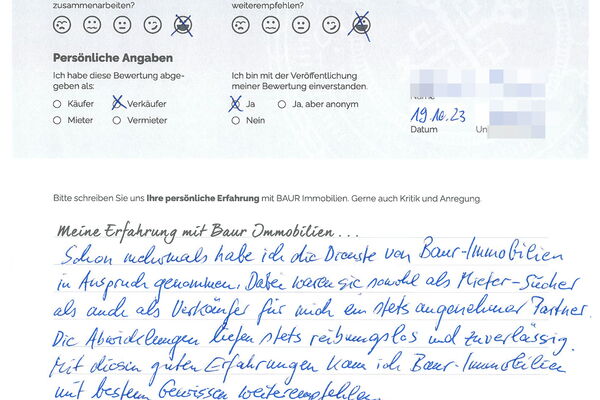 zusammenarbeiten?
weiterempfehlen?
Persönliche Angaben
Ich habe diese Bewertung abge-
geben als:
Käufer Verkäufer
Mieter Vermieter
Ich bin mit der Veröffentlichung
meiner Bewertung einverstanden.
Ja Ja, aber anonym
Nein
Name
19.10.23
Datum Un
Bitte schreiben Sie uns Ihre persönliche Erfahrung mit BAUR Immobilien. Gerne auch Kritik und Anregung.
Meine Erfahrung mit Baur Immobilien . . .
Schon mehrmals habe ich die Dienste von Baur-Immobilien
in Anspruch genommen. Dabei waren sie sowohl als Mieter-Sucher
als auch als Verkäufer für mich ein stets angenehmer Partner.
Die Abwicklungen liefen stets reibungslos und zuverlässig.
Mit diesen guten Erfahrungen kann ich Baur-Immobilien
mit bestem Gewissen weiterempfehlen.